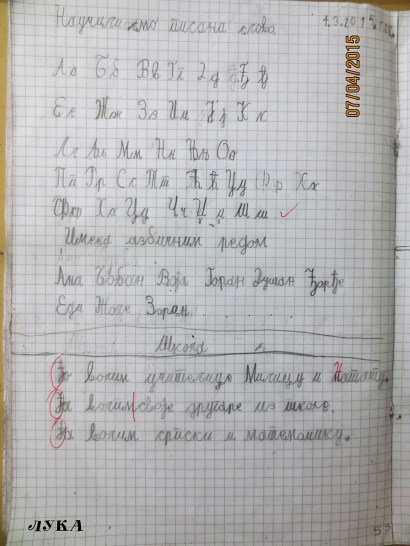 Научили смо писана слова
1.3.2015. год.
07/04/2015
Аа Бб Вв Гг Дд Ђђ
Ее Жж Зз Ии Јј Кк
Лл Љљ Мм Нн Њњ Оо
Пп Рр Сс Тт Ћћ Уу Фф Хх
Фф Хх Цц Чч Џџ Шш
Имена азбучним редом
Ана Бобан Воја Горан Душан Ђорђе
Еда Зоран
Школа
Ја волим учитељице Милицу и Наташу.
Ја волим своје другаре из школе.
Ја волим српски и математику.
ЛУКА